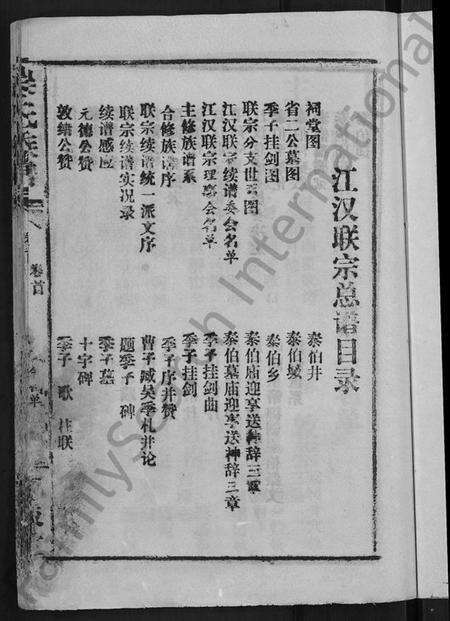 江汉联宗总谱目录
祠堂图
泰伯井
省二公墓图
泰伯墩
季子挂剑图
泰伯乡
联宗分支世系图
泰伯庙迎享送神辞三章
江汉联宗续谱委会名单
泰伯墓庙迎享送神辞三章
江汉联宗理事会名单
季子挂剑曲
主修族谱系
季子挂剑
合修族谱序
季子序并赞
联宗续谱统一派文序
曹子臧吴季札并论
联宗续谱实况录
题季子碑
续谱感应
季子墓
元德公赞
十字碑
敦绪公赞
季子歌
卷首
FamilySearch International